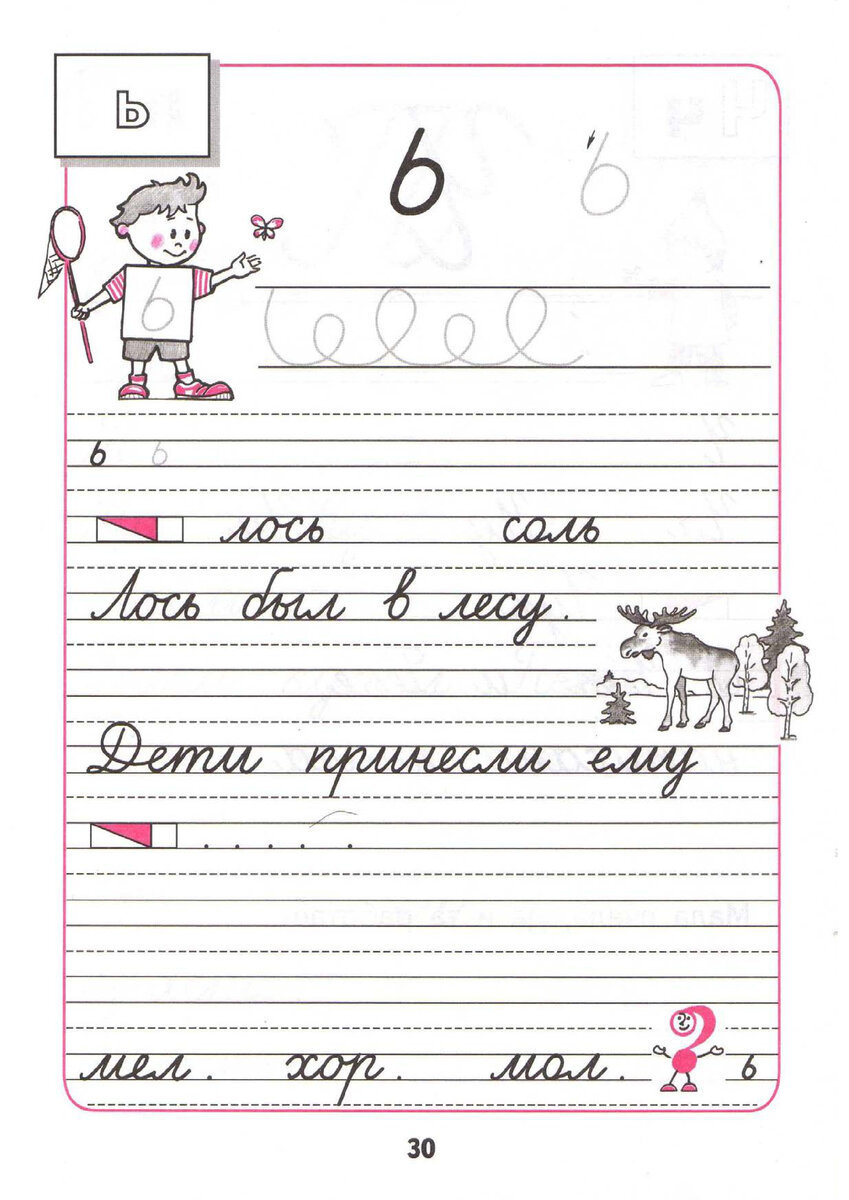 ь
ь ь
ь
ь ь
лось соль
Лось был в лесу.
Дети принесли ему
. . . . .
мел. хор. мол. ь
30